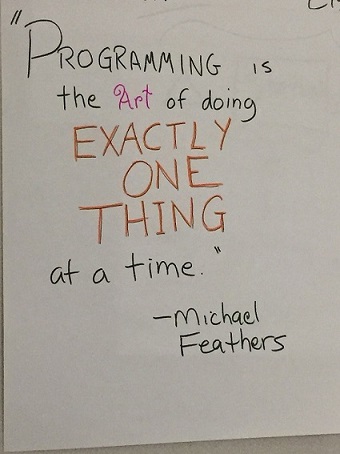 "PROGRAMMING is
the Art of doing
EXACTLY
ONE
THING
at a time."
-Michael
Feathers